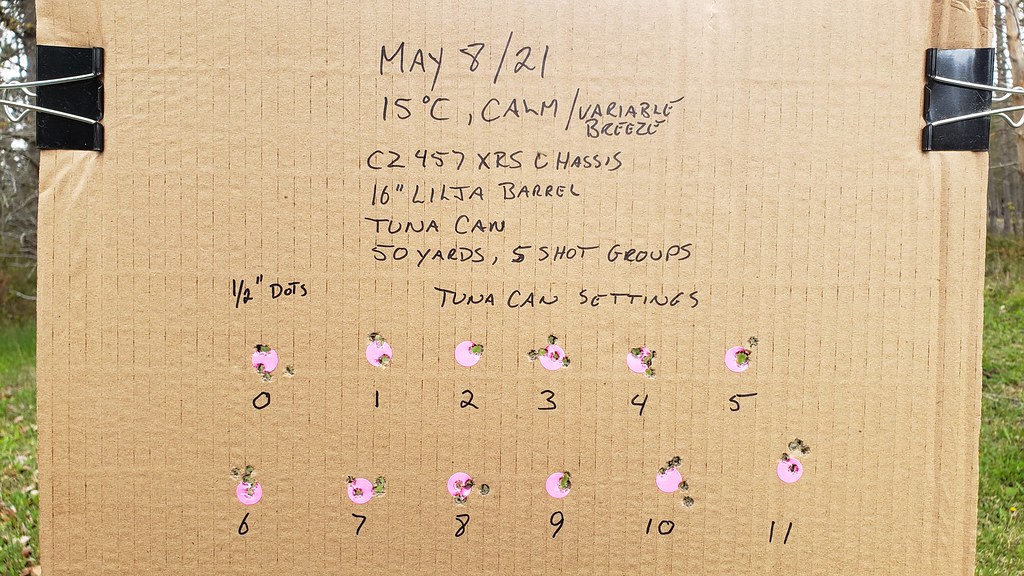 MAY 8/21
15°C, CALM/VARIABLE BREEZE
CZ 457 XRS CHASSIS
16" LILJA BARREL
TUNA CAN
50 YARDS, 5 SHOT GROUPS
1/2" DOTS
TUNA CAN SETTINGS
0 1 2 3 4 5
6 7 8 9 10 11